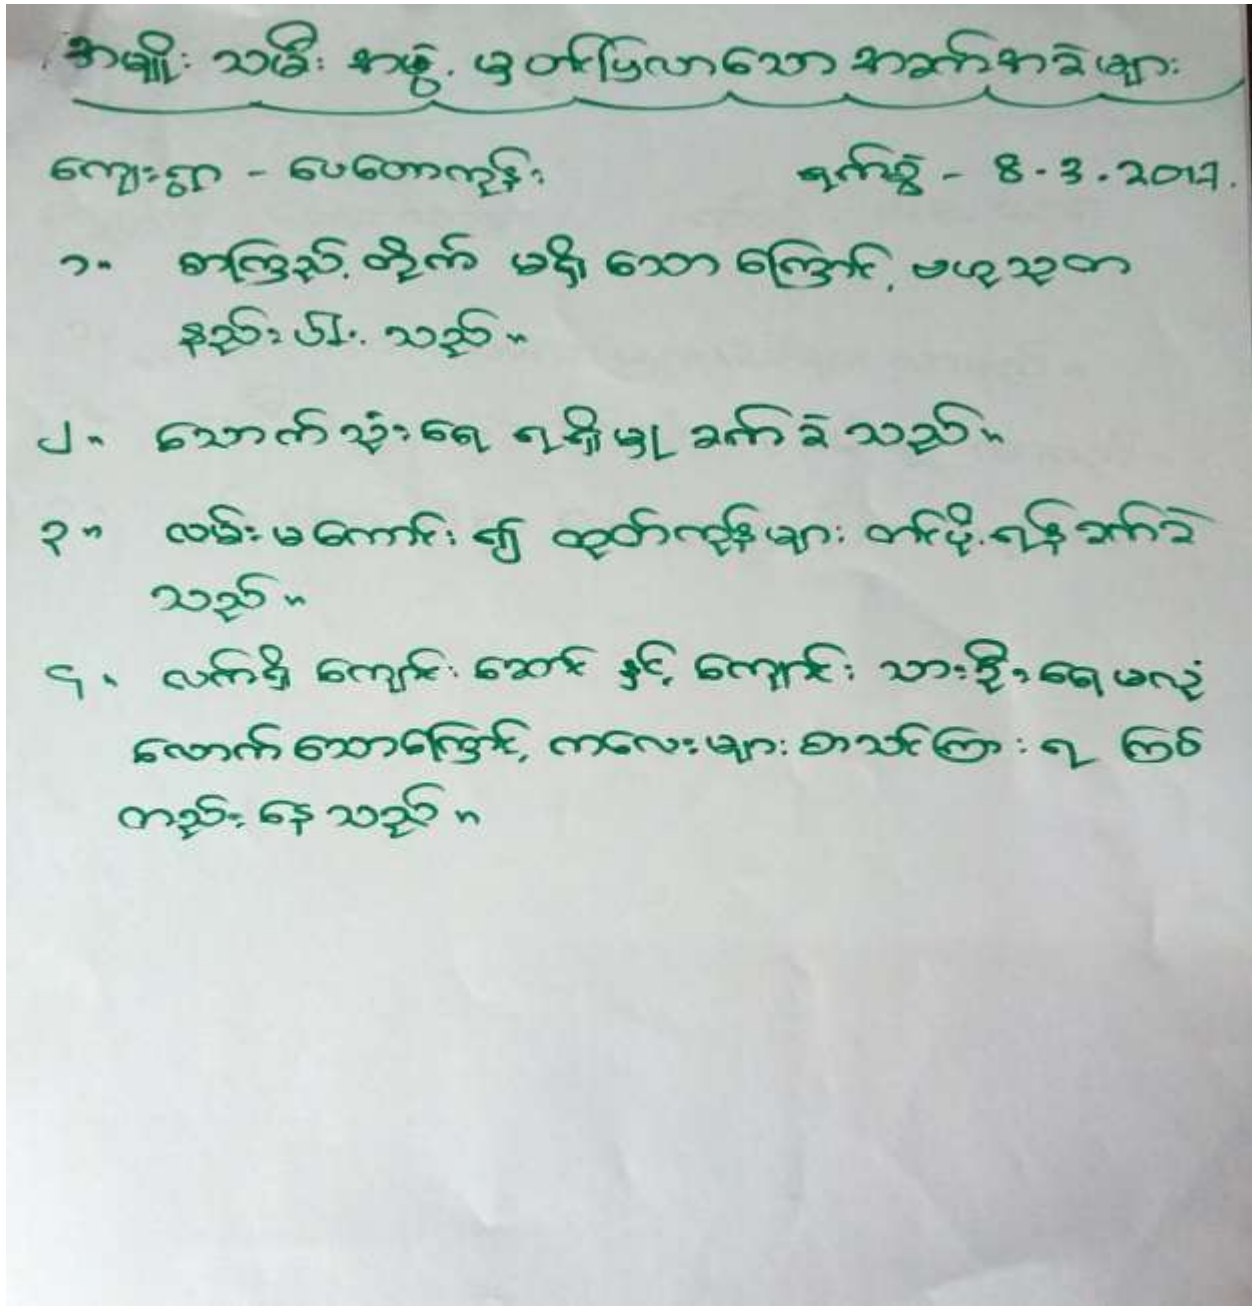 အမျိုးသမီးအဖွဲ့မှတင်ပြလာသောအခက်အခဲများ
ကျေးရွာ - ပေတောကုန်း ရက်စွဲ - 8.3.2017.
၁။ စာကြည့်တိုက် မရှိသောကြောင့် ဗဟုသုတ
နည်းပါးသည်။
၂။ သောက်သုံးရေ ရရှိမှု ခက်ခဲသည်။
၃။ လမ်းမကောင်း၍ ထုတ်ကုန်များ တင်ပို့ရန်ခက်ခဲ
သည်။
၄။ လက်ရှိ ကျောင်းဆောင် နှင့် ကျောင်းသားဦးရေမလုံ
လောက်သောကြောင့် ကလေးများစာသင်ကြားရ ကြပ်
တည်းနေသည်။